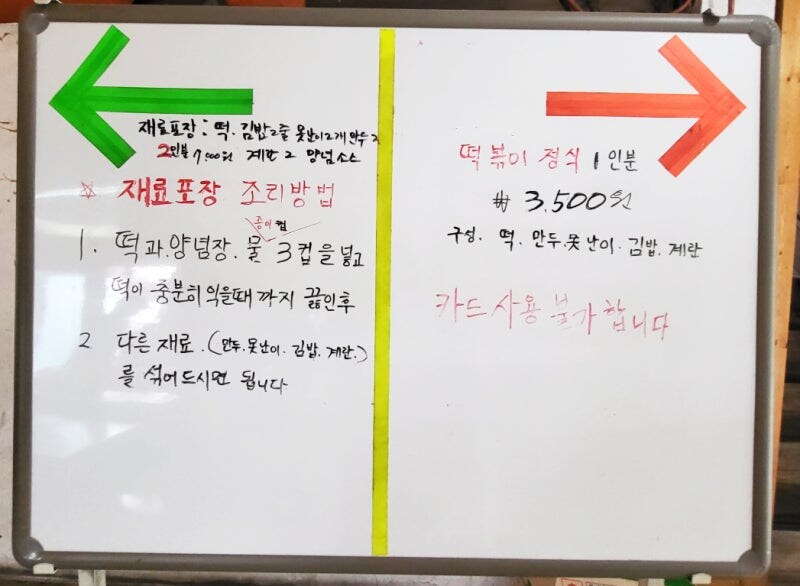 재료포장: 떡. 김밥2줄 못난이2개 만두2
2인분 7,000원 계란 2 양념소스
☆ 재료포장 조리방법
종이컵
1. 떡과.양념장.물 3컵을 넣고
떡이 충분히 익을때까지 끓인후
2 다른재료.(만두.못난이.김밥.계란.)
를 섞어드시면 됩니다
떡볶이 정식 1인분
₩ 3.500원
구성. 떡. 만두.못난이.김밥.계란
카드사용불가합니다